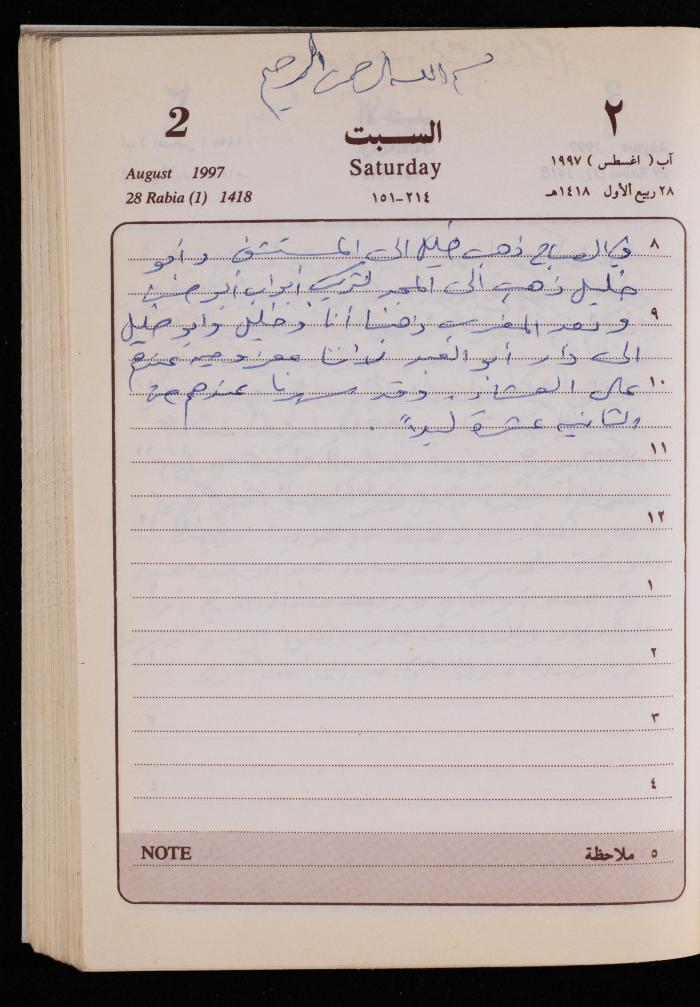 بسم الله الرحمن الرحيم
2 السبت ٢
August 1997 Saturday آب ( اغسطس ) ١٩٩٧
28 Rabia (1) 1418 ٢١٤-١٥١ ٢٨ ربيع الأول ١٤١٨هـ
٨ في الصباح ذهب خليل الى المستشفى وأبو
خليل ذهب الى المجد لتركيب أبواب أبو
٩ وبعد المغرب ذهبنا أنا وخليل وأبو خليل
الى دار أبو العبد لأننا معزومين عندهم
١٠ على العشاء. وقد سهرنا عندهم
الثانية عشرة ليلاً.
١١
١٢
١
٢
٣
٤
NOTE ٥ ملاحظة